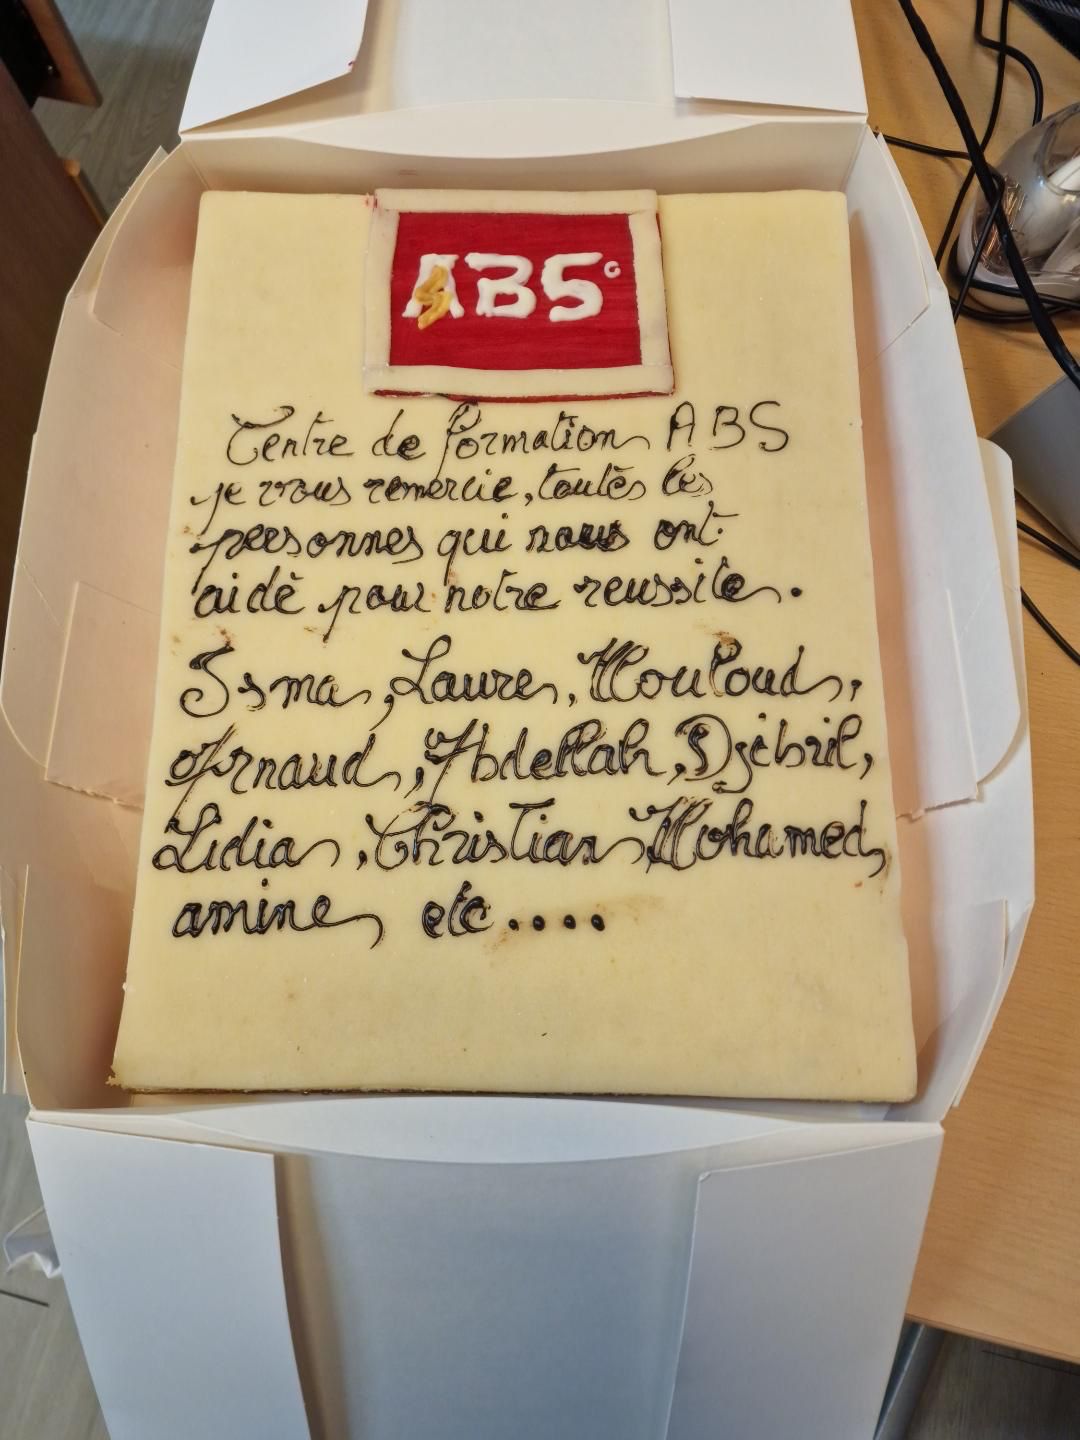 ABS
Centre de formation ABS
je vous remercie, toutès les
personnes qui nous ont
aidè pour notre reussite.
Isma, Laure, Mouloud,
Arnaud, Abdellah, Djibril,
Lidia, Christian, Mohamed,
amine, etc....